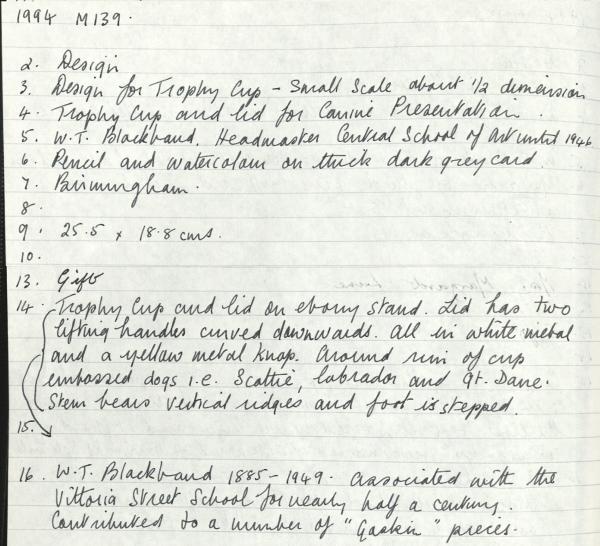 1994 M139.
2. Design
3. Design for Trophy Cup - Small Scale about 1/2 dimension
4. Trophy Cup and lid for Canine Presentation.
5. W.T. Blackband, Headmaster Central School of Art until 1946
6. Pencil and watercolour on thick dark grey card.
7. Birmingham.
8.
9. 25.5 x 18.8 cms.
10.
13. Gift
14. Trophy Cup and lid on ebony stand. Lid has two
lifting handles curved downwards. All in white metal
and a yellow metal knap. Around rim of cup
embossed dogs i.e. Scottie, labrador and Gt. Dane.
Stem bears vertical ridges and foot is stepped.
15.
16. W.T. Blackband 1885-1949. associated with the
Vittoria Street School for nearly half a century.
Contributed to a number of "Gaskin" pieces.